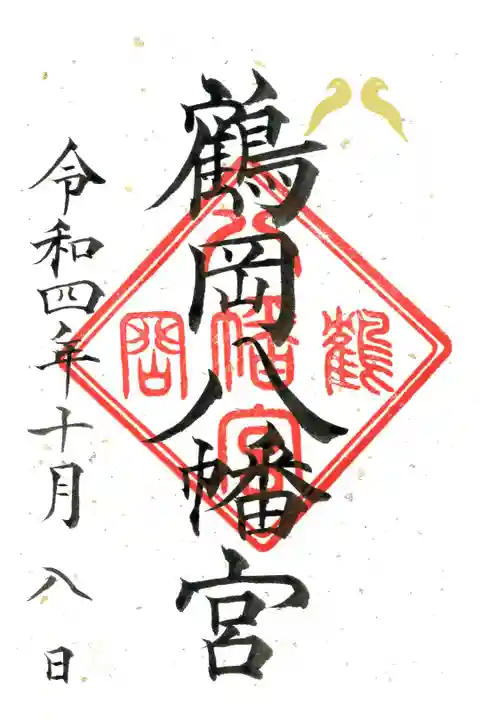 鶴岡八幡宮
令和四年十月八日
鶴岡八幡宮